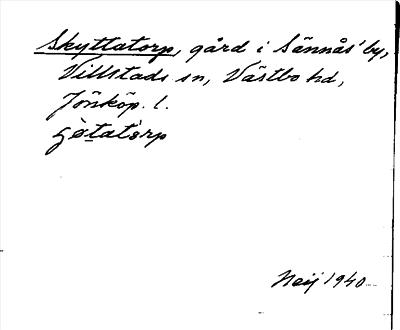 Skyttatorp, gård i Sännås' by,
Villstads sn, Västbo hd,
Jönköp. l.
Neij 1940